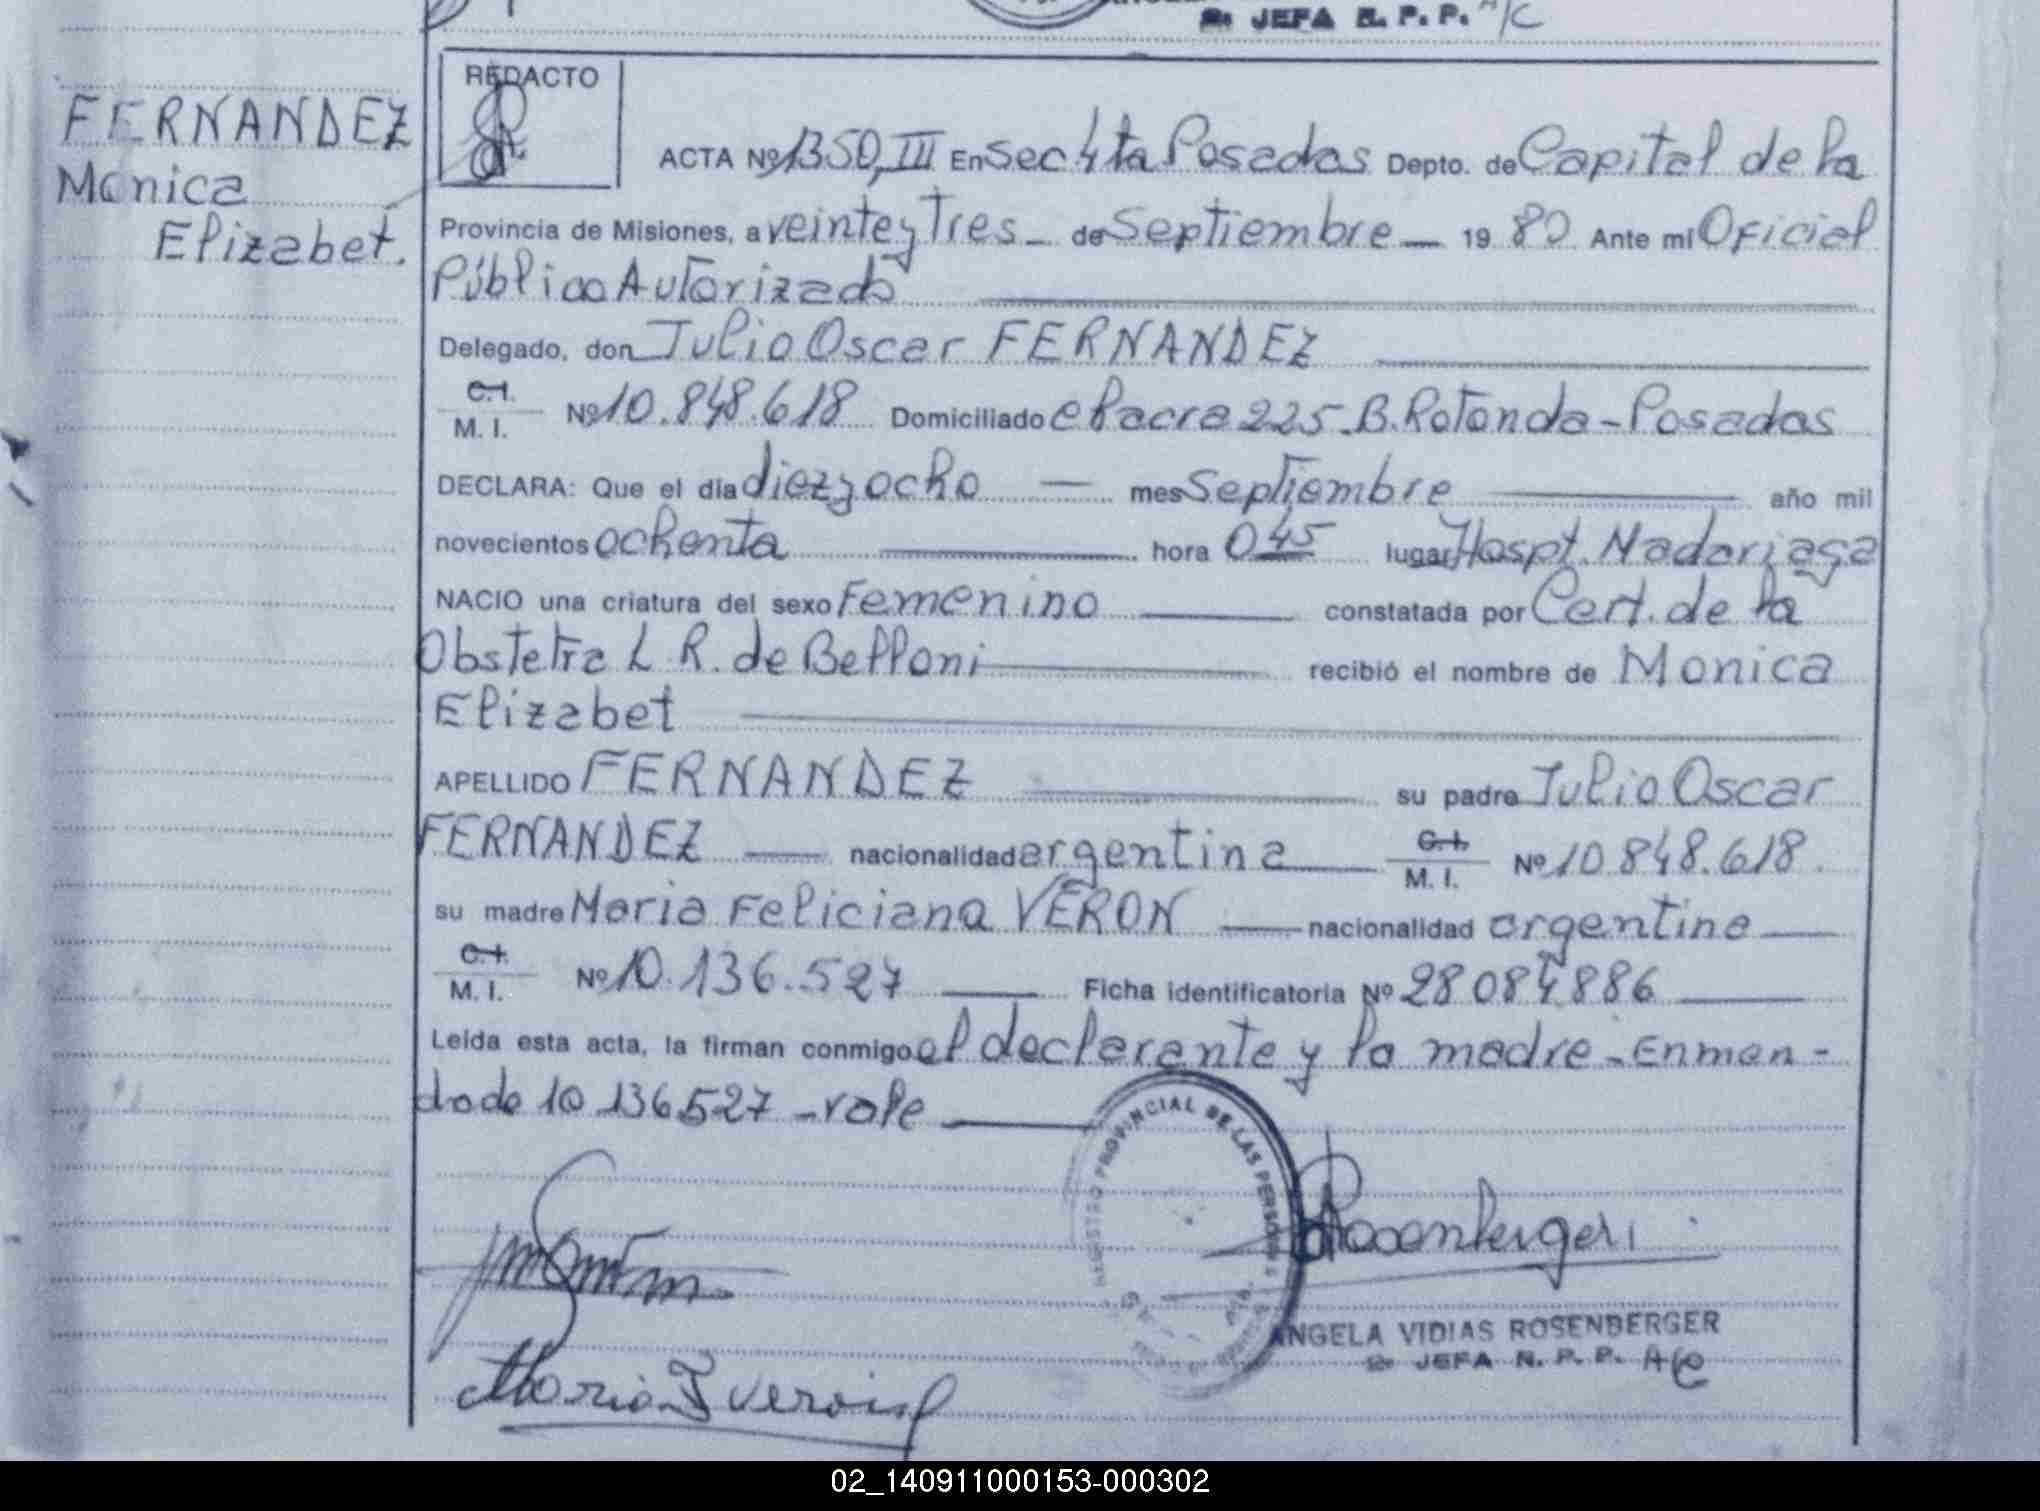 2º JEFA R. P. P. A/C
FERNANDEZ
Monica
Elizabet.
REDACTO
ACTA Nº 1350, III En Sec 4ta Posadas Depto. de Capital de la
Provincia de Misiones, a veinte y Tres - de Septiembre - 19 80 Ante mi Oficial
Público Autorizado
Delegado, don Julio Oscar FERNANDEZ
C.I.
M. I. Nº 10.848.618 Domiciliado chacra 225-B. Rotonda - Posadas
DECLARA: Que el día diez y ocho — mes Septiembre año mil
novecientos ochenta hora 0 45 lugar Hospt. Madariaga
NACIO una criatura del sexo Femenino constatada por Cert. de la
Obstetra L. R. de Belloni recibió el nombre de Monica
Elizabet
APELLIDO FERNANDEZ su padre Julio Oscar
FERNANDEZ — nacionalidad argentina C.I. M. I. Nº 10.848.618.
su madre Maria Feliciana VERON — nacionalidad argentina
C.I.
M. I. Nº 10.136.527 Ficha identificatoria Nº 28084886
Leída esta acta, la firman conmigo el declarante y la madre - Enmen -
dado 10.136.527 - vale
REGISTRO PROVINCIAL DE LAS PERSONAS
Rosenberger
ANGELA VIDIAS ROSENBERGER
2º JEFA R. P. P. A/C
Maria F Veron
02_140911000153-000302